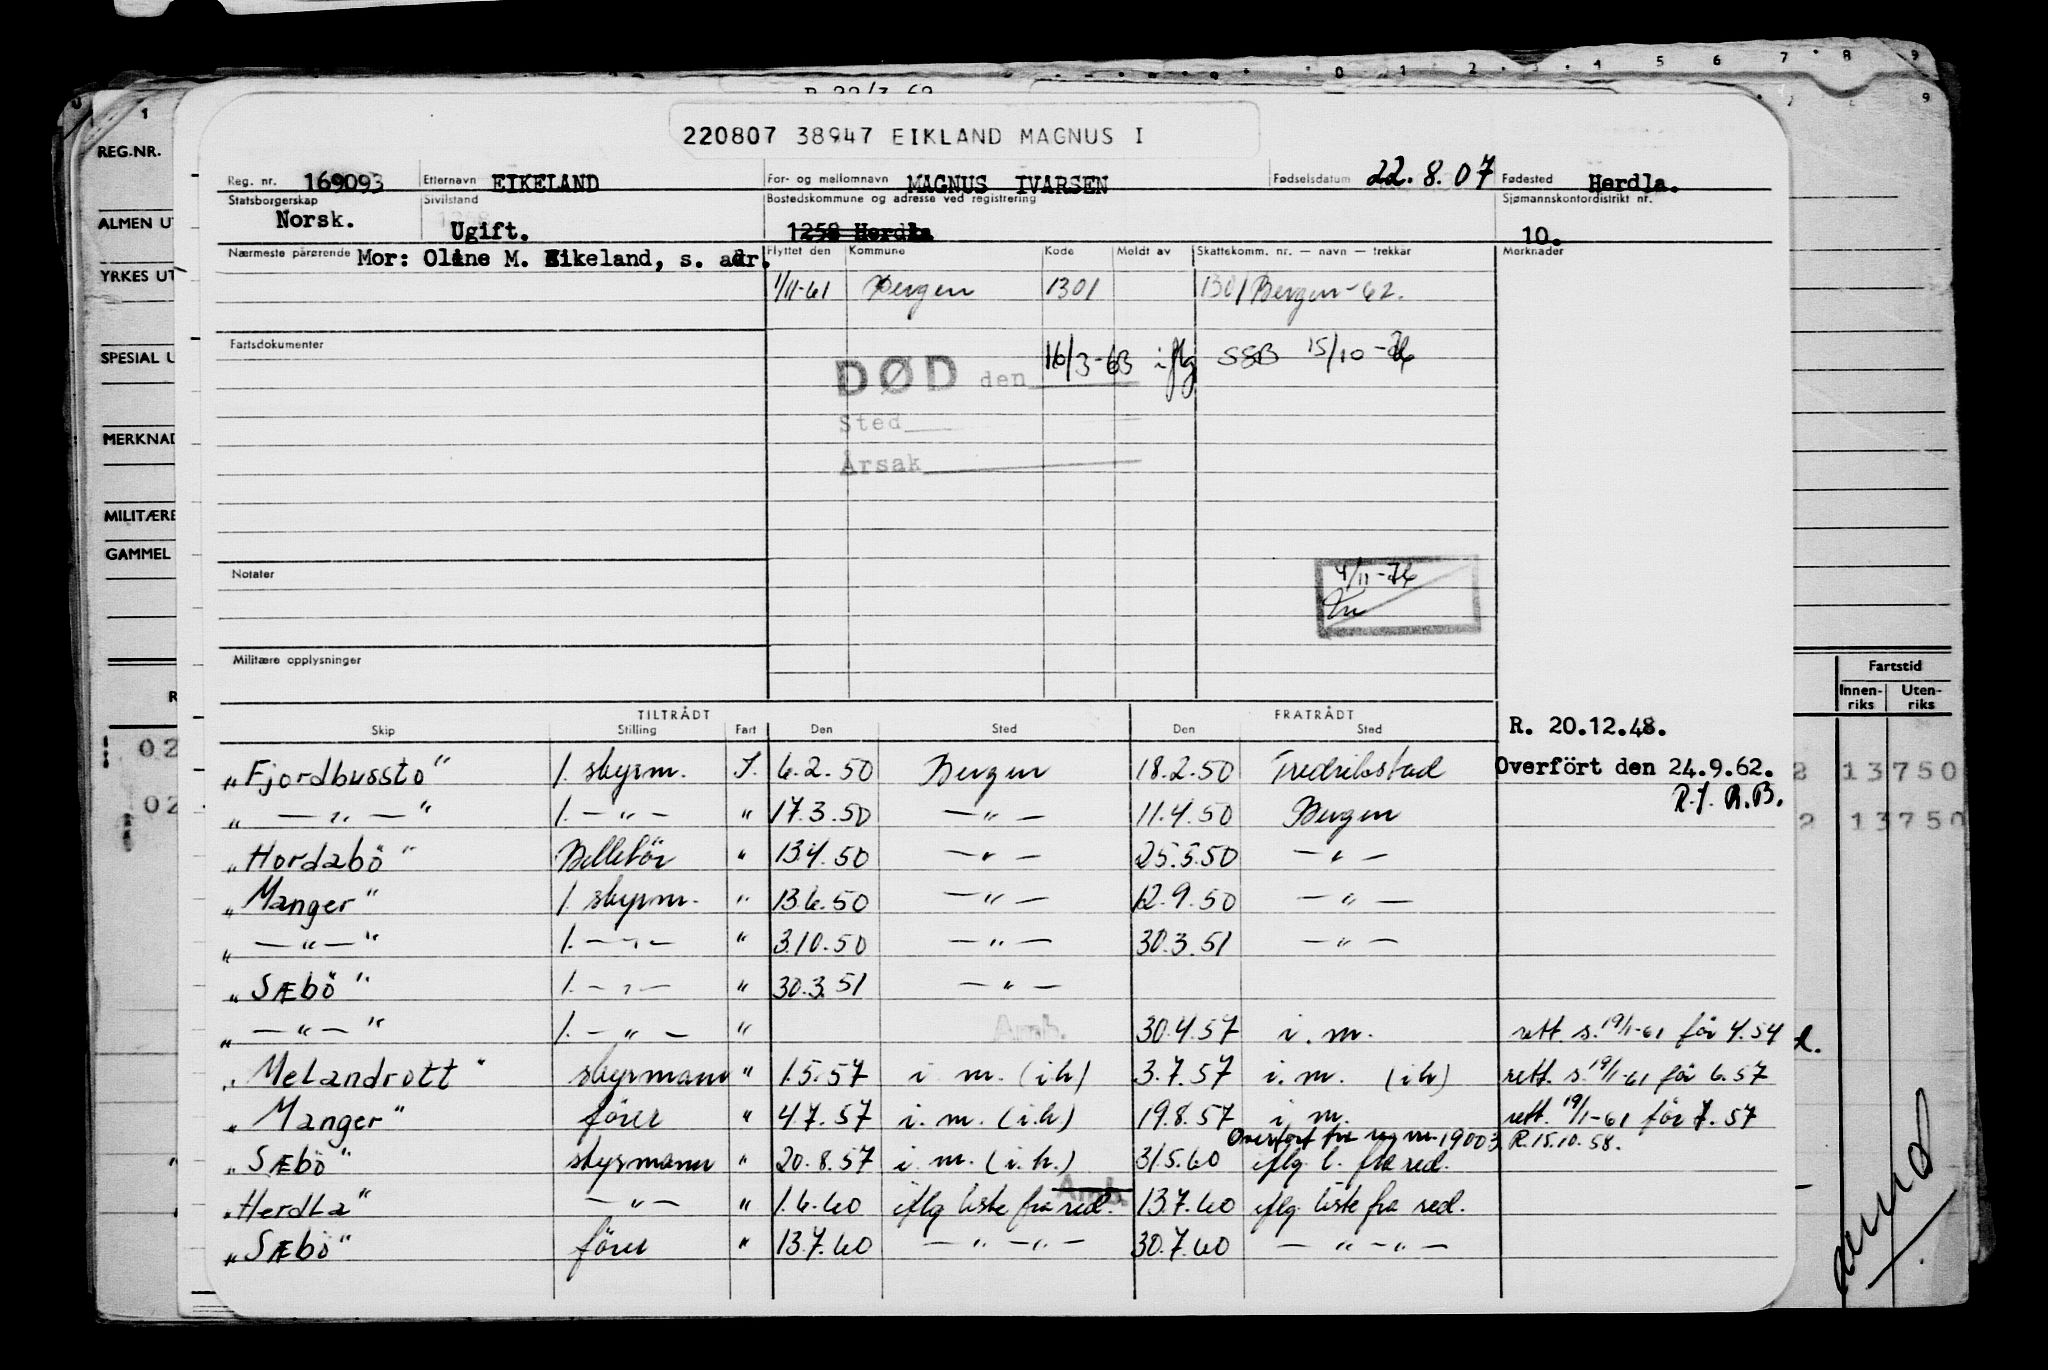 220807 38947 EIKLAND MAGNUS I
Reg. nr. 169093 Etternavn EIKELAND For- og mellomnavn MAGNUS IVARSEN Fødselsdatum 22.8.07 Fødested Herdla.
Statsborgerskap Norsk. Sivilstand Ugift. Bostedskommune og adresse ved registrering 1258 Herdla Sjømannskontordistrikt nr. 10.
Nærmeste pårørende Mor: Oline M. Eikeland, s. adr. Flyttet den Kommune Kode Meldt av Skattekomm. nr. — navn — trekkår Merknader
1/11-61 Bergen 1301 1301 Bergen-62.
Fartsdokumenter
DØD den 16/3-63 iflg SSB 15/10-76
Sted
Årsak
Notater
4/11-76
Militære opplysninger
TILTRÅDT FRATRÅDT
Skip Stilling Fart Den Sted Den Sted
R. 20.12.48.
"Fjordbussto" 1. styrm. I. 6.2.50 Bergen 18.2.50 Fredrikstad Overfört den 24.9.62.
R.J. R.B.
" — " — " 1. — " — " 17.3.50 — " — 11.4.50 Bergen
"Hordabö" Billetör " 13.4.50 — " — 25.5.50 — " —
"Manger" 1. styrm. " 13.6.50 — " — 12.9.50 — " —
" — " — " 1. — " — " 3.10.50 — " — 30.3.51 — " —
"Sæbö" 1. — " — " 30.3.51 — " —
" — " — " 1. — " — " Amb. 30.4.57 i. m. rett. s. 19/1-61 för 4.54
"Melandrott" styrmann " 1.5.57 i. m. (i.h) 3.7.57 i. m. (i h) rett. s. 19/1-61 för 6.57
"Manger" förer " 4.7.57 i. m. (i.h) 19.8.57 i. m. rett. 19/1-61 för 7.57
Overfört fra reg nr. 19003 R.15.10.58.
"Sæbö" styrmann " 20.8.57 i. m. (i.h.) 31.5.60 iflg. l. fra red.
"Herdla" — " — " 1.6.60 iflg liste fra red. Amb. 13.7.60 iflg. liste fra red.
"Sæbö" förer " 13.7.60 — " — " — 30.7.60 — " — " —
REG.NR.
ALMEN UT
YRKES UT
SPESIAL U
MERKNAD
MILITÆRE
GAMMEL
R
02
02
Fartstid
Innen-riks Uten-riks
2 13750
2 13750